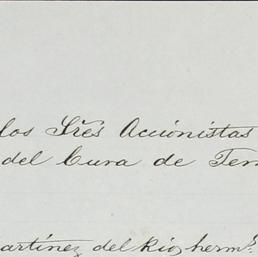 los Sres Accionistas
del Cura de Tem
artínez del Rio, hermˢ